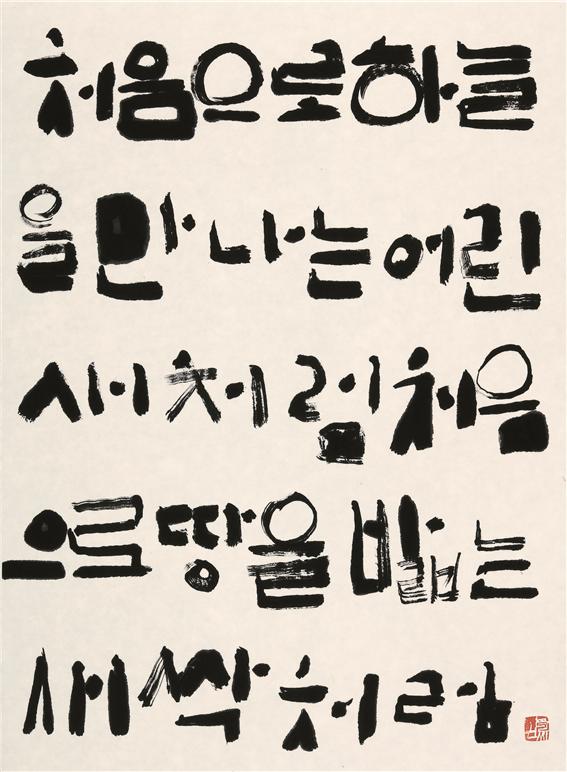 처음으로하늘
을만나는어린
새처럼처음
으로땅을밟는
새싹처럼